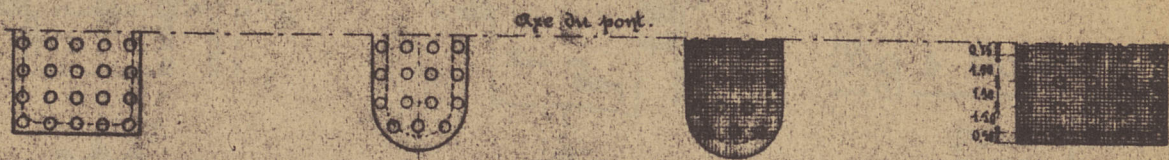 Axe du pont.
0,75
1.50
1.50
1.50
0,50